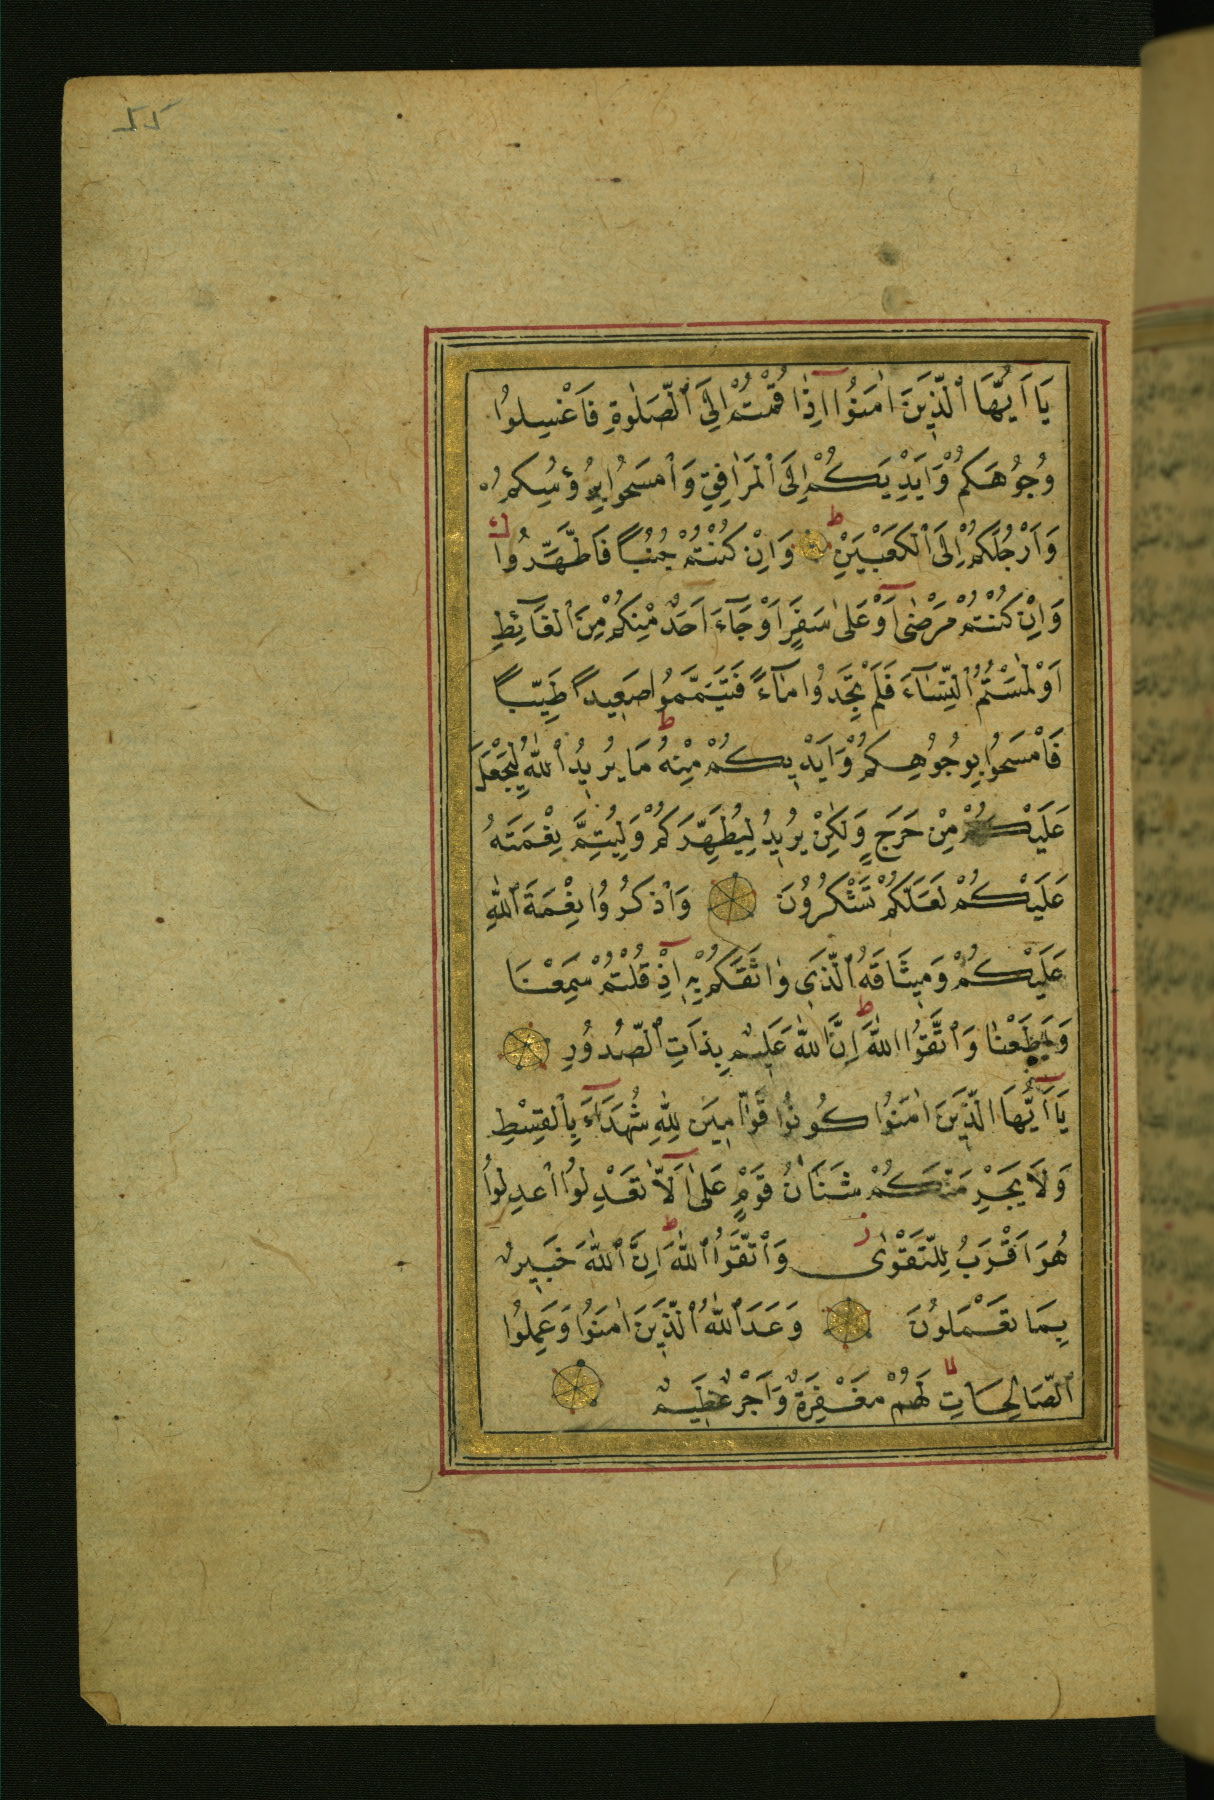 يَا اَيُّهَا الَّذِينَ اٰمَنُوا اِذَا قُمْتُمْ اِلَى الصَّلٰوةِ فَاغْسِلُوا
وُجُوهَكُمْ وَاَيْدِيَكُمْ اِلَى الْمَرَافِقِ وَامْسَحُوا بِرُؤُسِكُمْ
وَاَرْجُلَكُمْ اِلَى الْكَعْبَيْنِ وَاِنْ كُنْتُمْ جُنُبًا فَاطَّهَّرُوا
وَاِنْ كُنْتُمْ مَرْضٰى اَوْ عَلٰى سَفَرٍ اَوْ جَآءَ اَحَدٌ مِنْكُمْ مِنَ الْغَآئِطِ
اَوْ لٰمَسْتُمُ النِّسَآءَ فَلَمْ تَجِدُوا مَآءً فَتَيَمَّمُوا صَعِيدًا طَيِّبًا
فَامْسَحُوا بِوُجُوهِكُمْ وَاَيْدِيكُمْ مِنْهُ مَا يُرِيدُ اللّٰهُ لِيَجْعَلَ
عَلَيْكُمْ مِنْ حَرَجٍ وَلٰكِنْ يُرِيدُ لِيُطَهِّرَكُمْ وَلِيُتِمَّ نِعْمَتَهُ
عَلَيْكُمْ لَعَلَّكُمْ تَشْكُرُونَ وَاذْكُرُوا نِعْمَةَ اللّٰهِ
عَلَيْكُمْ وَمِيثَاقَهُ الَّذِي وَاثَقَكُمْ بِهِ اِذْ قُلْتُمْ سَمِعْنَا
وَاَطَعْنَا وَاتَّقُوا اللّٰهَ اِنَّ اللّٰهَ عَلِيمٌ بِذَاتِ الصُّدُورِ
يَا اَيُّهَا الَّذِينَ اٰمَنُوا كُونُوا قَوَّامِينَ لِلّٰهِ شُهَدَآءَ بِالْقِسْطِ
وَلَا يَجْرِمَنَّكُمْ شَنَاٰنُ قَوْمٍ عَلٰى اَلَّا تَعْدِلُوا اعْدِلُوا
هُوَ اَقْرَبُ لِلتَّقْوٰى وَاتَّقُوا اللّٰهَ اِنَّ اللّٰهَ خَبِيرٌ
بِمَا تَعْمَلُونَ وَعَدَ اللّٰهُ الَّذِينَ اٰمَنُوا وَعَمِلُوا
الصَّالِحَاتِ لَهُمْ مَغْفِرَةٌ وَاَجْرٌ عَظِيمٌ